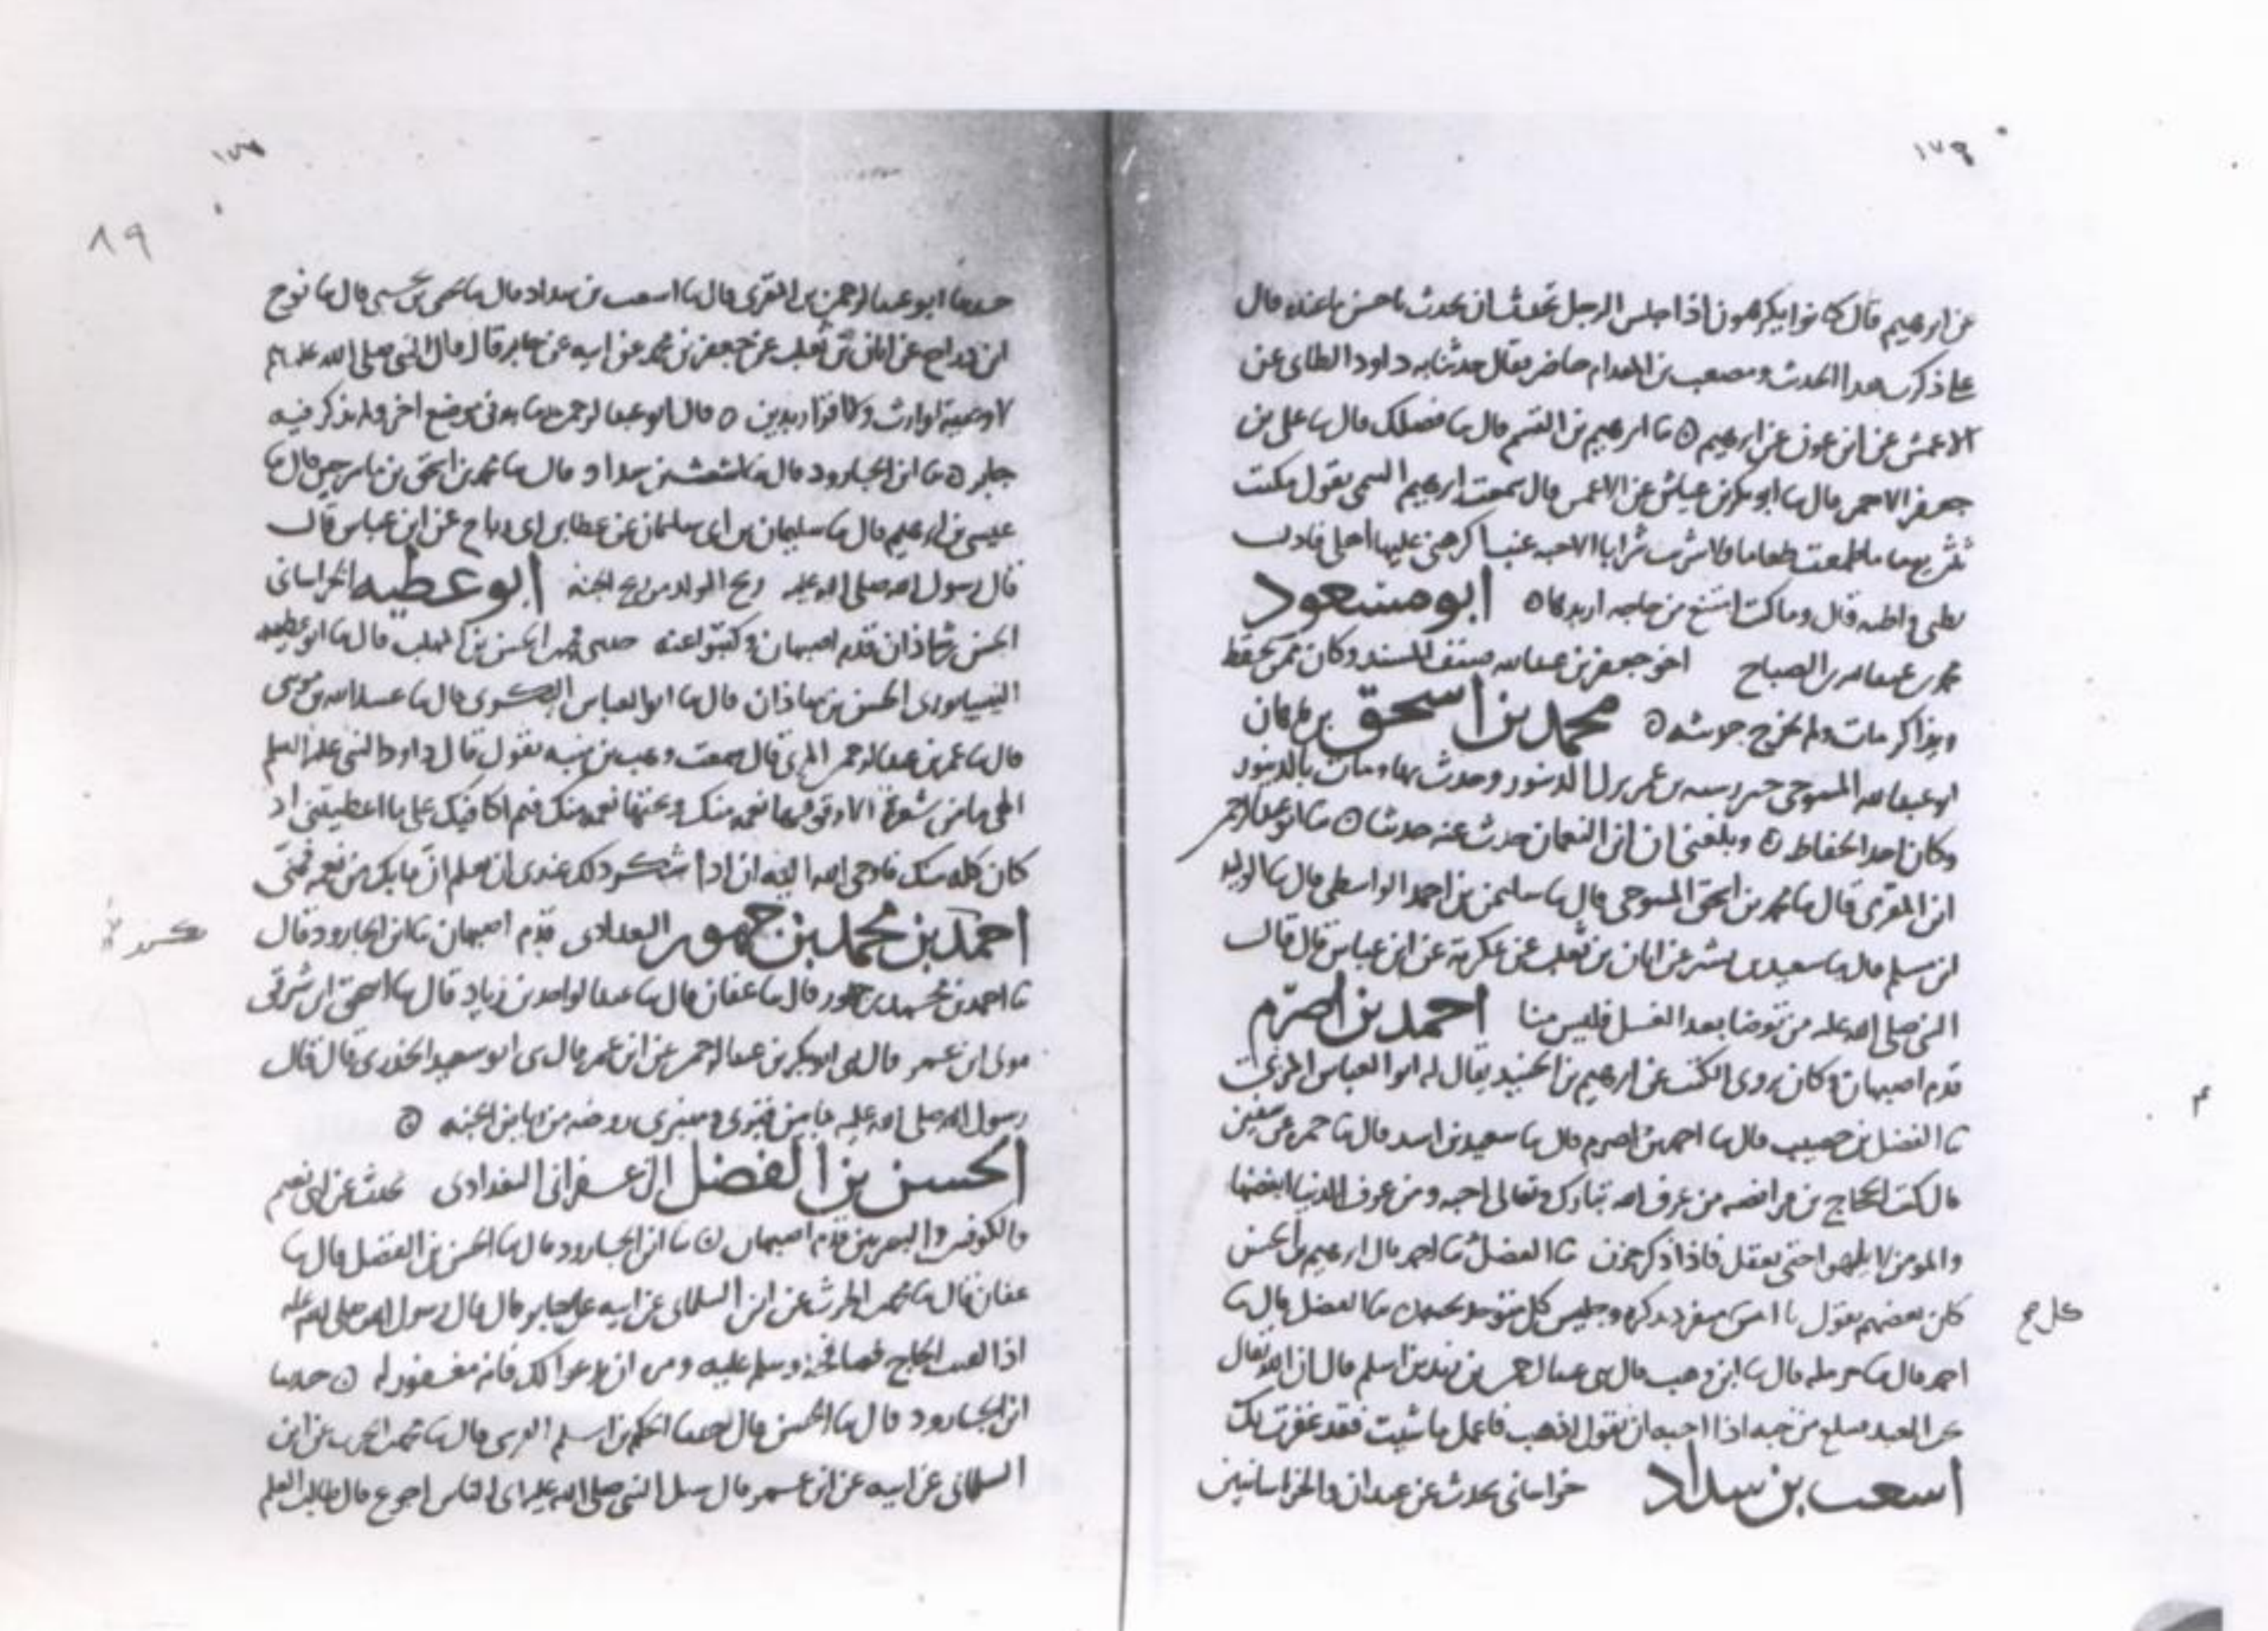 ١٧٩
عن ابرهيم قال كانوا يكرهون اذا جلس الرجل تحدث ان يحدث باحسن ما عنده قال
علي ذكرت هدا الحديث ومصعب بن المقدام حاضر فقال حدثنا به داود الطاى عن
الاعمش عن ابن عون عن ابرهيم ٥ ثنا ابرهيم بن القسم قال ثنا فضلك قال ثنا علي بن
جعفر الاحمر قال ثنا ابو بكر بن عياش عن الاعمس قال سمعت ابرهيم التيمى يقول مكثت
ثلثين يوما ما طعمت طعاما ولا شربت شرابا الا حبه عنب اكرهنى عليها اهلى فاذت
بطنى واظنه قال وما كنت امتنع من حاجه اريدها ٥ ابو مسعود
محمد بن عبد الله بن الصباح اخو جعفر بن عبد الله صنف المسند وكان ممن يحفظ
ويذاكر مات ولم يخرج حديثه ٥ محمد بن اسحق
ابو عبد الله المسوحى نزل الدينور وحدث بها ومات بالدينور
وكان احد الحفاظ ٥ وبلغنى ان ابن النعمان حدث عنه حدثنا ٥ ثنا ابو عبد الرحمن
ابن المقرى قال ثنا محمد بن اسحق المسوحى قال ثنا سليمن بن احمد الواسطى قال ثنا الوليد
ابن مسلم قال ثنا سعيد بن بشير عن ابان بن تغلب عن عكرمة عن ابن عباس قال قال
النبى صلى الله عليه من توضا بعد الغسل فليس منا احمد بن اصرم
قدم اصبهان وكان يروى الكتب عن ابرهيم بن الجنيد يقال له ابو العباس المزنى
ثنا الفضل بن حبيب قال ثنا احمد بن اصرم قال ثنا سعيد بن اسد قال ثنا ضمره
قال كتب الحجاج بن فرافصه من عرف الله تبارك وتعالى احبه ومن عرف الدنيا ابغضها
والمومن لا يلهوا حتى يغفل فاذا ذكر حزن ثنا الفضل ثنا احمد قال ابرهيم بن الحسن
كان بعضهم يقول يا انس كل منفرد بذكره وجليس كل متوحد بحبه ٥ ثنا الفضل قال ثنا
احمد قال ثنا حرمله قال ثنا ابن وهب قال ثنى عبد الرحمن بن زيد بن اسلم قال ان الله تعالى
يحب العبد فيبلغ من حبه اذا احبه ان يقول اذهب فاعمل ما شيت فقد غفرت لك
اسعب بن سداد خراسانى يحدث عن عبدان والخراسانيين
٨٩
حدثنا ابو عبد الرحمن بن المقرى قال ثنا اسعب بن سداد قال ثنا يحيى بن يحيى قال ثنا نوح
ابن دراج عن ابان بن تغلب عن جعفر بن محمد عن ابيه عن جابر قال قال النبى صلى الله عليه
لا وصية لوارث ولا اقرار بدين ٥ قال ابو عبد الرحمن ثنا به فى موضع اخر ولم يذكر فيه
جابر ٥ ثنا ابن الجارود قال ثنا اشعث بن سداد قال ثنا محمد بن اسحق بن قال ثنا
عيسى بن ابرهيم قال ثنا سليمان بن ابى سليمان عن عطا بن ابى رباح عن ابن عباس قال
قال رسول الله صلى الله عليه ريح الولد من ريح الجنه ابو عطيه الخراسانى
الحسن بن شاذان قدم اصبهان وكتبوا عنه حدثنى الحسن بن المهلب قال ثنا ابو عطيه
النيسابورى الحسن بن شاذان قال ثنا ابو العباس اليشكرى قال ثنا عبيد الله بن موسى
قال ثنا عمر بن عبد الرحمن قال سمعت وهب بن منبه يقول قال داود النبى عليه السلم
الهى ما من شعرة الا وفوقها نعمه منك وتحتها نعمه منك فبم اكافيك على ما اعطيتنى اذ
كان كله منك فاوحى الله اليه ان اداء شكر ذلك عندى ان تعلم ان ما بك من نعمه فمنى
احمد بن محمد بن جمهور البغدادى قدم اصبهان ثنا ابن الجارود قال
ثنا احمد بن محمد بن جمهور قال ثنا عفان قال ثنا عبد الواحد بن زياد قال ثنا اسحق ابن شرقى
مولى ابن عمر قال ثنى ابو بكر بن عبد الرحمن عن ابن عمر قال ثنى ابو سعيد الخدرى قال قال
رسول الله صلى الله عليه ما بين قبرى ومنبرى روضه من رياض الجنه ٥
الحسن بن الفضل الزعفرانى البغدادى يحدث عن ابى نعيم
والكوفيين والبصريين قدم اصبهان ٥ ثنا ابن الجارود قال ثنا الحسن بن الفضل قال ثنا
عفان قال ثنا محمد بن الحرث عن ابن البيلمانى عن ابيه عن قال قال رسول الله صلى الله عليه
اذا لقيت الحاج فصافحه وسلم عليه ومره ان يدعو لك فانه مغفور له ٥ حدثنا
ابن الجارود قال ثنا الحسن قال حدثنا الحكم بن اسلم قال ثنا محمد بن الحرث عن ابن
البيلمانى عن ابيه عن ابن عمر قال سئل النبى صلى الله عليه اى الناس اجوع قال طالب العلم